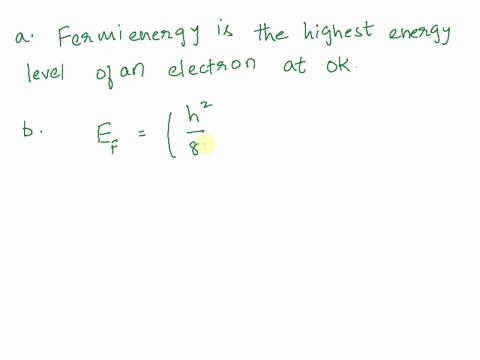 a. Fermi energy is the highest energy
level of an electron at 0K.
b. E_F = ( h²/8